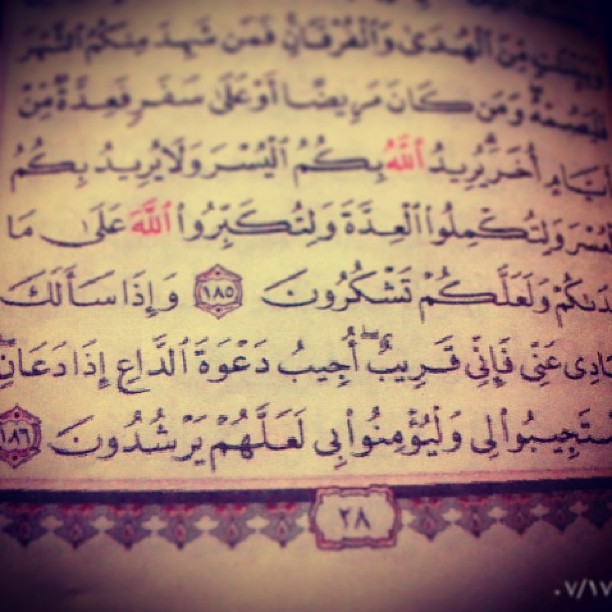 مِّنَ ٱلۡهُدَىٰ وَٱلۡفُرۡقَانِۚ فَمَن شَهِدَ مِنكُمُ ٱلشَّهۡرَ
وَمَن كَانَ مَرِيضًا أَوۡ عَلَىٰ سَفَرٖ فَعِدَّةٞ مِّنۡ
أُخَرَۗ يُرِيدُ ٱللَّهُ بِكُمُ ٱلۡيُسۡرَ وَلَا يُرِيدُ بِكُمُ
وَلِتُكۡمِلُواْ ٱلۡعِدَّةَ وَلِتُكَبِّرُواْ ٱللَّهَ عَلَىٰ مَا
وَلَعَلَّكُمۡ تَشۡكُرُونَ ١٨٥ وَإِذَا سَأَلَكَ
عَنِّي فَإِنِّي قَرِيبٌۖ أُجِيبُ دَعۡوَةَ ٱلدَّاعِ إِذَا دَعَانِۖ
لِي وَلۡيُؤۡمِنُواْ بِي لَعَلَّهُمۡ يَرۡشُدُونَ ١٨٦
٢٨
٠٧/١٧